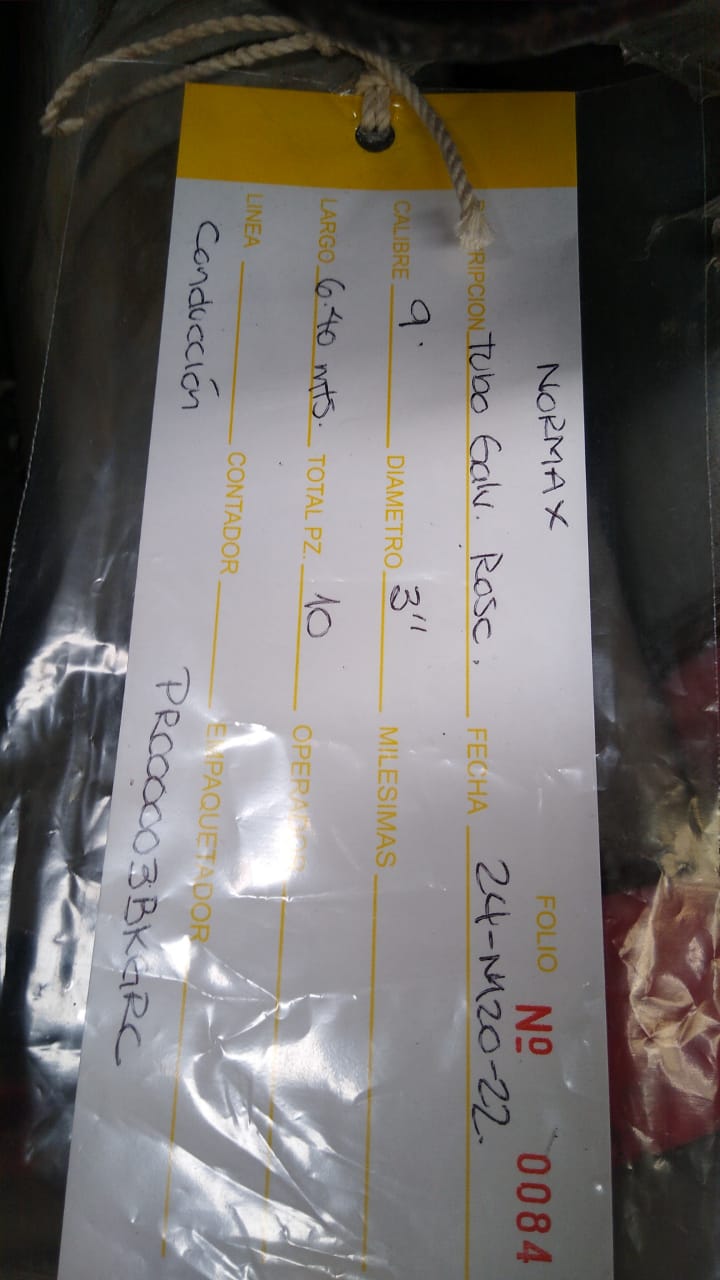 NORMAX FOLIO Nº 0084
RIPCION Tubo Galv. Rosc. FECHA 24-Mzo-22.
CALIBRE 9. DIAMETRO 3" MILESIMAS
LARGO 6.40 mts. TOTAL PZ. 10 OPERADOR
LINEA CONTADOR EMPAQUETADOR
Conducción PRO00003BKGRC